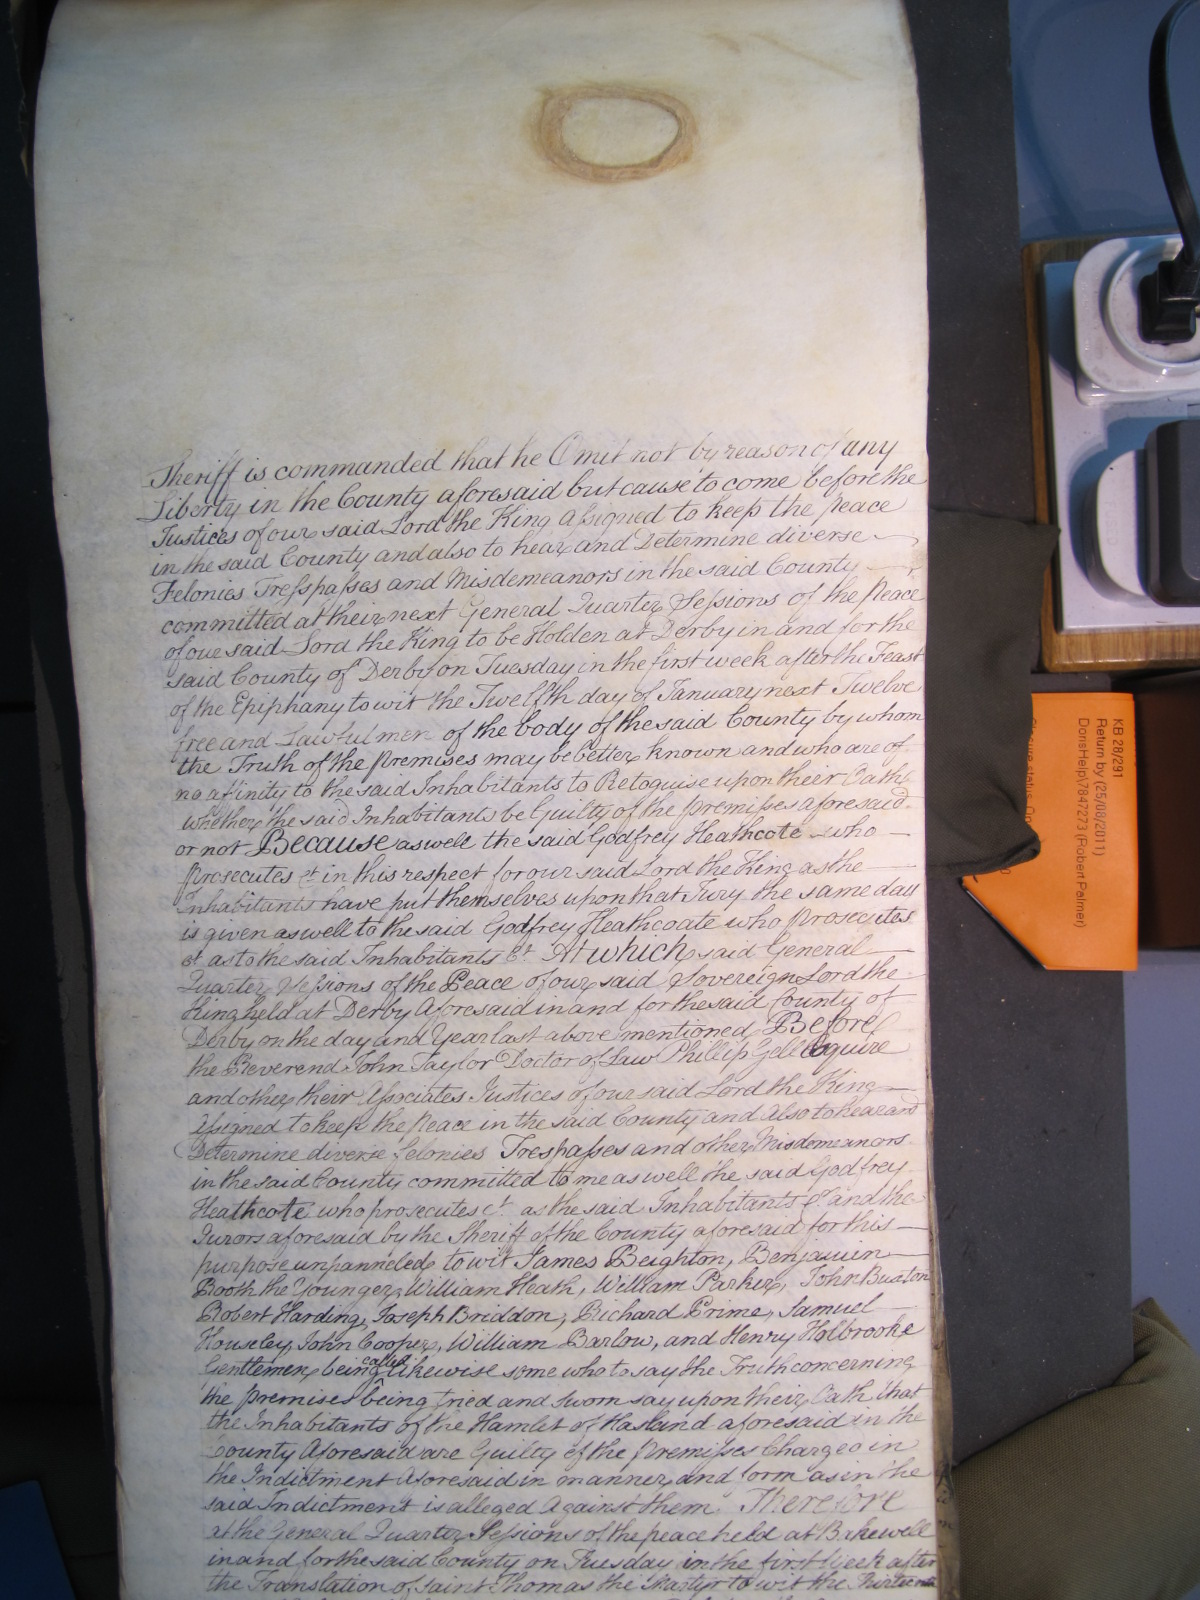 Sheriff is commanded that he Omit not by reason of any
Liberty in the County aforesaid but cause to come before the
Justices of our said Lord the King Assigned to keep the peace
in the said County and also to hear and Determine diverse
Felonies Tresspasses and Misdemeanors in the said County
committed at their next General Quarter Sessions of the Peace
of our said Lord the King to be Holden at Derby in and for the
said County of Derby on Tuesday in the first week after the Feast
of the Epiphany to wit the Twelfth day of January next Twelve
free and Lawful men of the body of the said County by whom
the Truth of the premises may be better known and who are of
no affinity to the said Inhabitants to Recognise upon their Oath
whether the said Inhabitants be Guilty of the premisses aforesaid
or not Because as well the said Godfrey Heathcote who
prosecutes &c in this respect for our said Lord the King as the
Inhabitants have put themselves upon that Jury the same day
is given as well to the said Godfrey Heathcoate who prosecutes
&c as to the said Inhabitants &c At which said General
Quarter Sessions of the Peace of our said Sovereign Lord the
King held at Derby Aforesaid in and for the said County of
Derby on the day and Year last above mentioned Before
the Reverend John Taylor Doctor of Law Phillip Gell Esquire
and other their Associates Justices of our said Lord the King
Assigned to keep the Peace in the said County and Also to hear and
Determine diverse Felonies Trespasses and other Misdemeanors
in the said County committed to me as well the said Godfrey
Heathcote who prosecutes &c as the said Inhabitants &c and the
Jurors aforesaid by the Sheriff of the County aforesaid for this
purpose impanneled to wit James Beighton, Benjamin
Booth the Younger, William Heath, William Parker, John Buxton
Robert Harding, Joseph Briddon, Richard Prime, Samuel
Houseley, John Cooper, William Barlow, and Henry Holbrooke
Gentlemen being called likewise come who to say the Truth concerning
the premises being tried and sworn say upon their Oath that
the Inhabitants of the Hamlet of Hasland aforesaid in the
County Aforesaid are Guilty of the premisses Charged in
the Indictment Aforesaid in manner and form as in the
said Indictment is alleged Against them Therefore
at the General Quarter Sessions of the peace held at Bakewell
in and for the said County on Tuesday in the first Week after
the Translation of Saint Thomas the Martyr to wit the Thirteenth
KB 28/291
Return by (25/08/2011)
DorisHelp784723 (Robert Palmer)